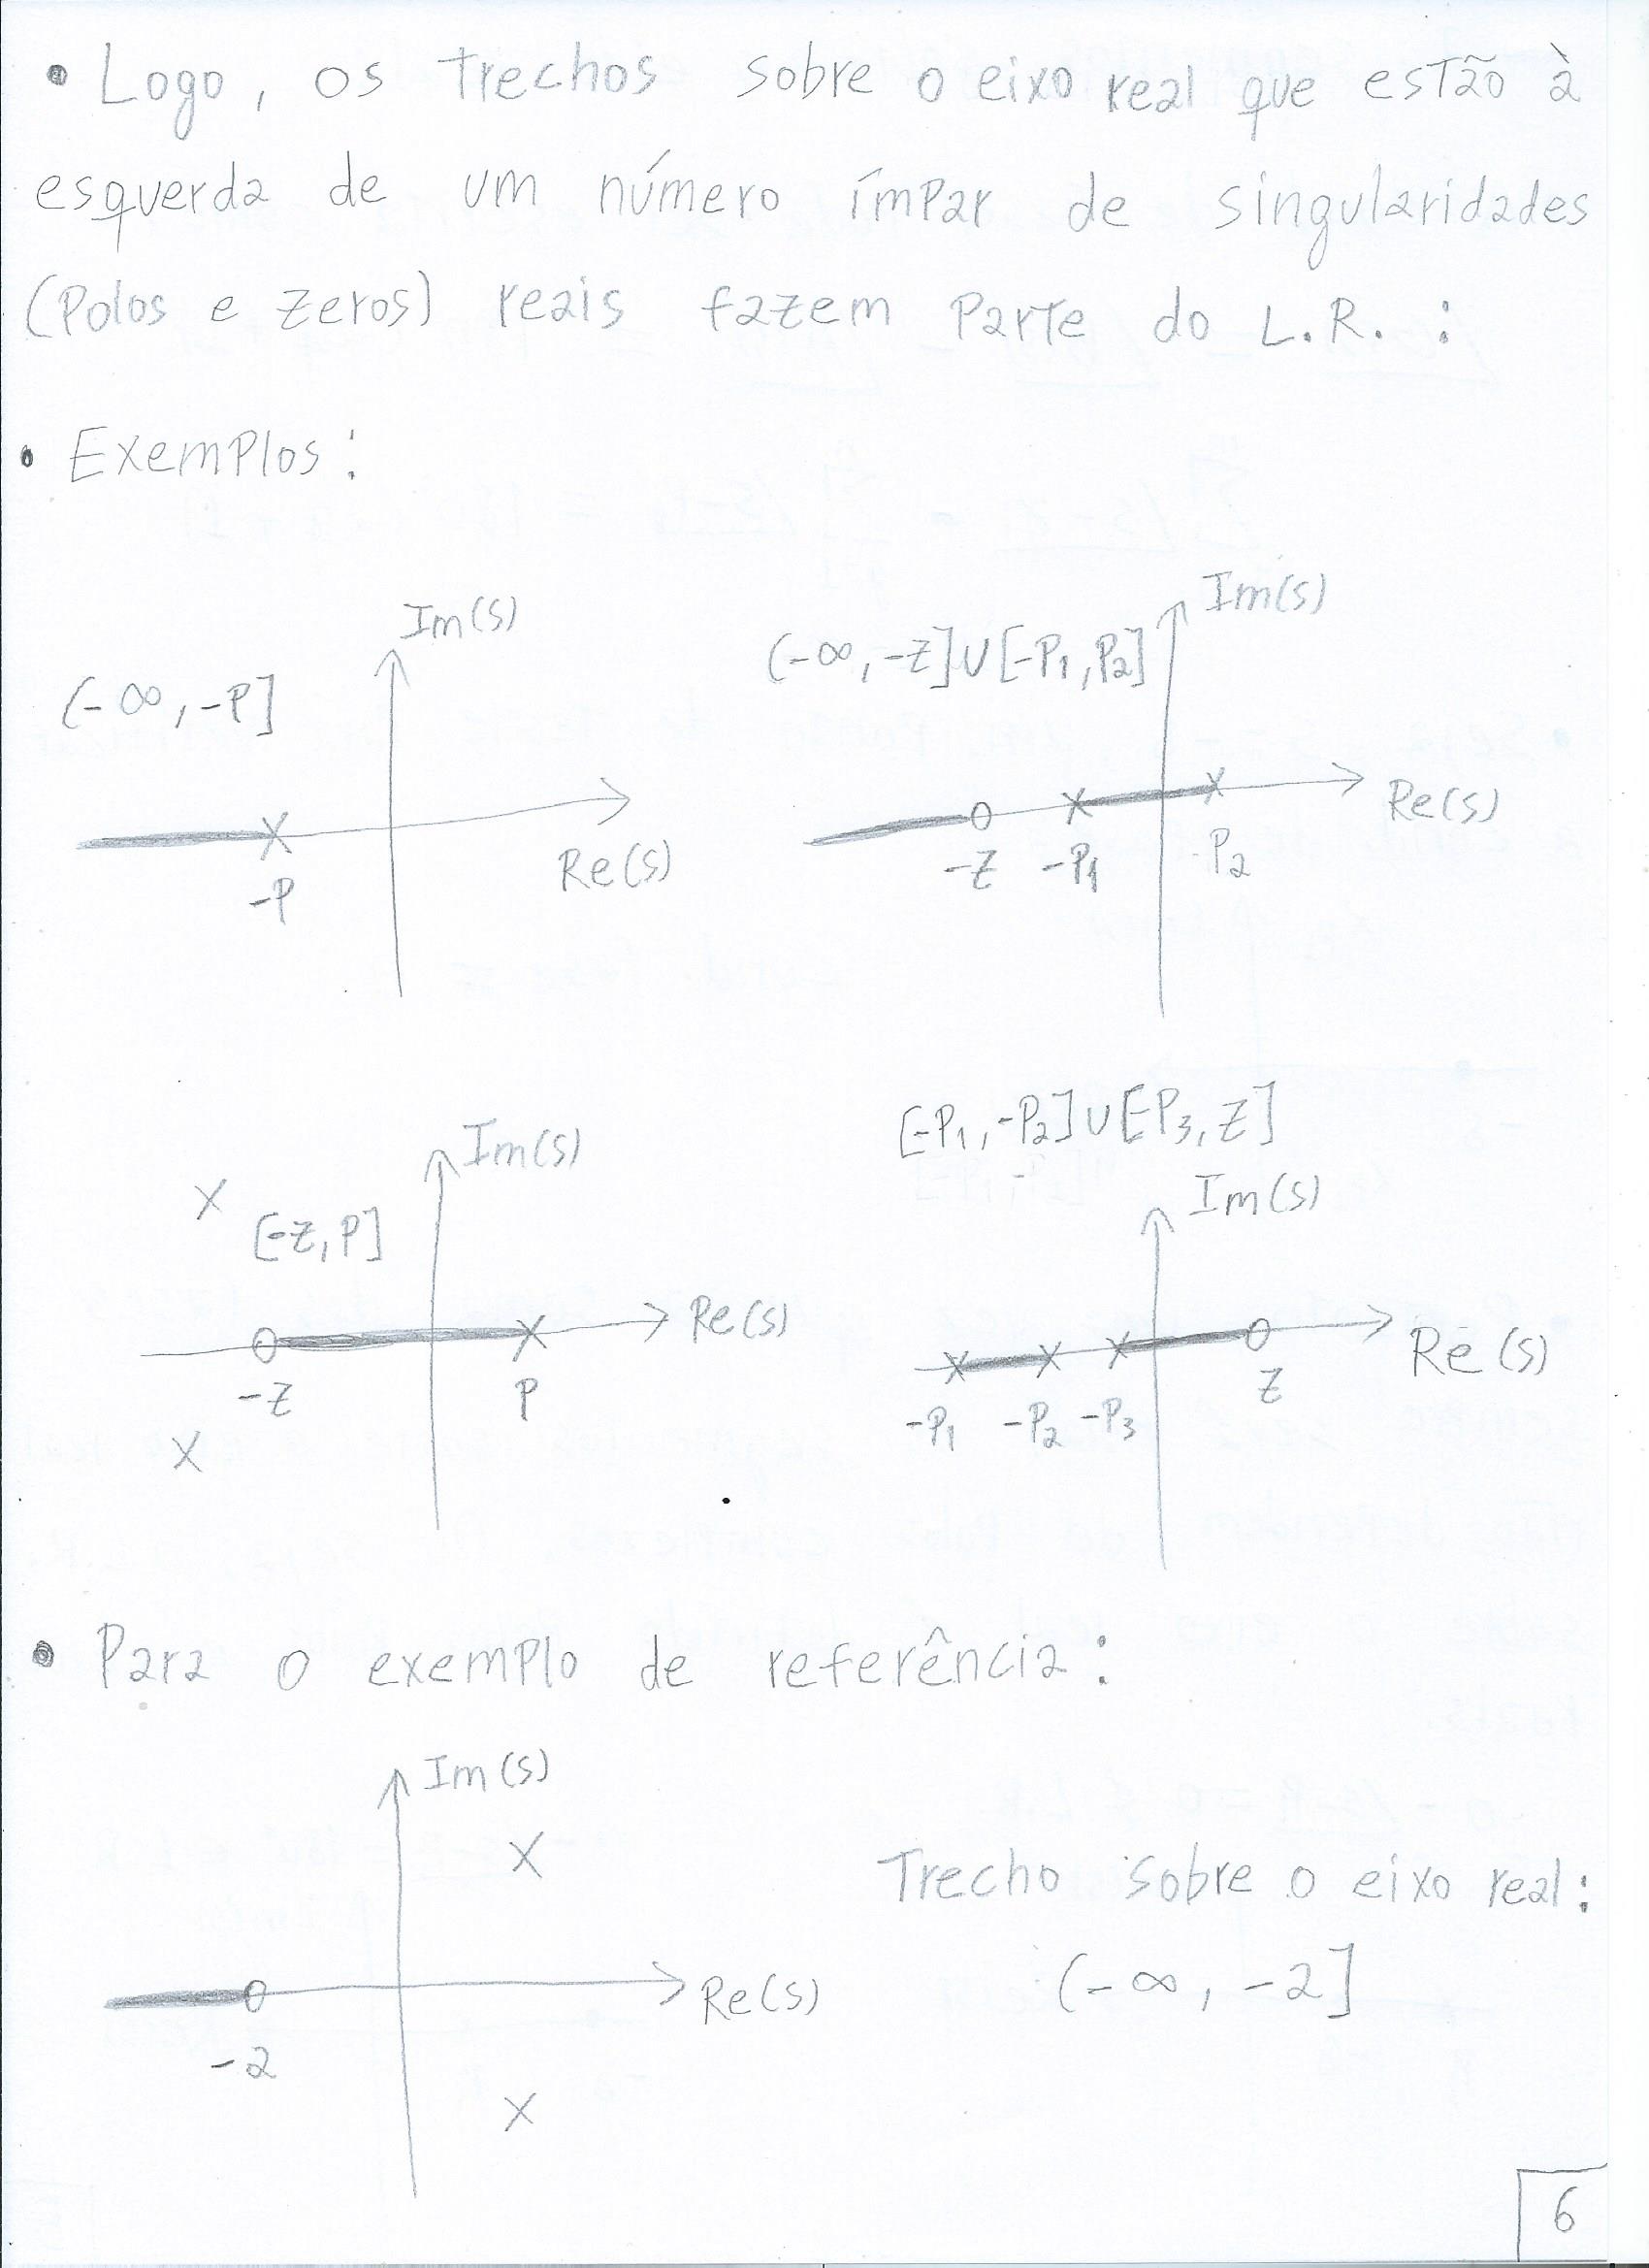 • Logo, os trechos sobre o eixo real que estão à
esquerda de um número ímpar de singularidades
(Polos e zeros) reais fazem parte do L.R. :
• Exemplos:
Im(s)
(-∞, -P]
-P
Re(s)
Im(s)
(-∞, -z] U [-P1, P2]
-z -P1 P2
Re(s)
Im(s)
[-z, P]
Re(s)
-z P
[-P1, -P2] U [-P3, z]
Im(s)
Re(s)
-P1 -P2 -P3 z
• Para o exemplo de referência:
Im(s)
Re(s)
-2
Trecho sobre o eixo real:
(-∞, -2]
6